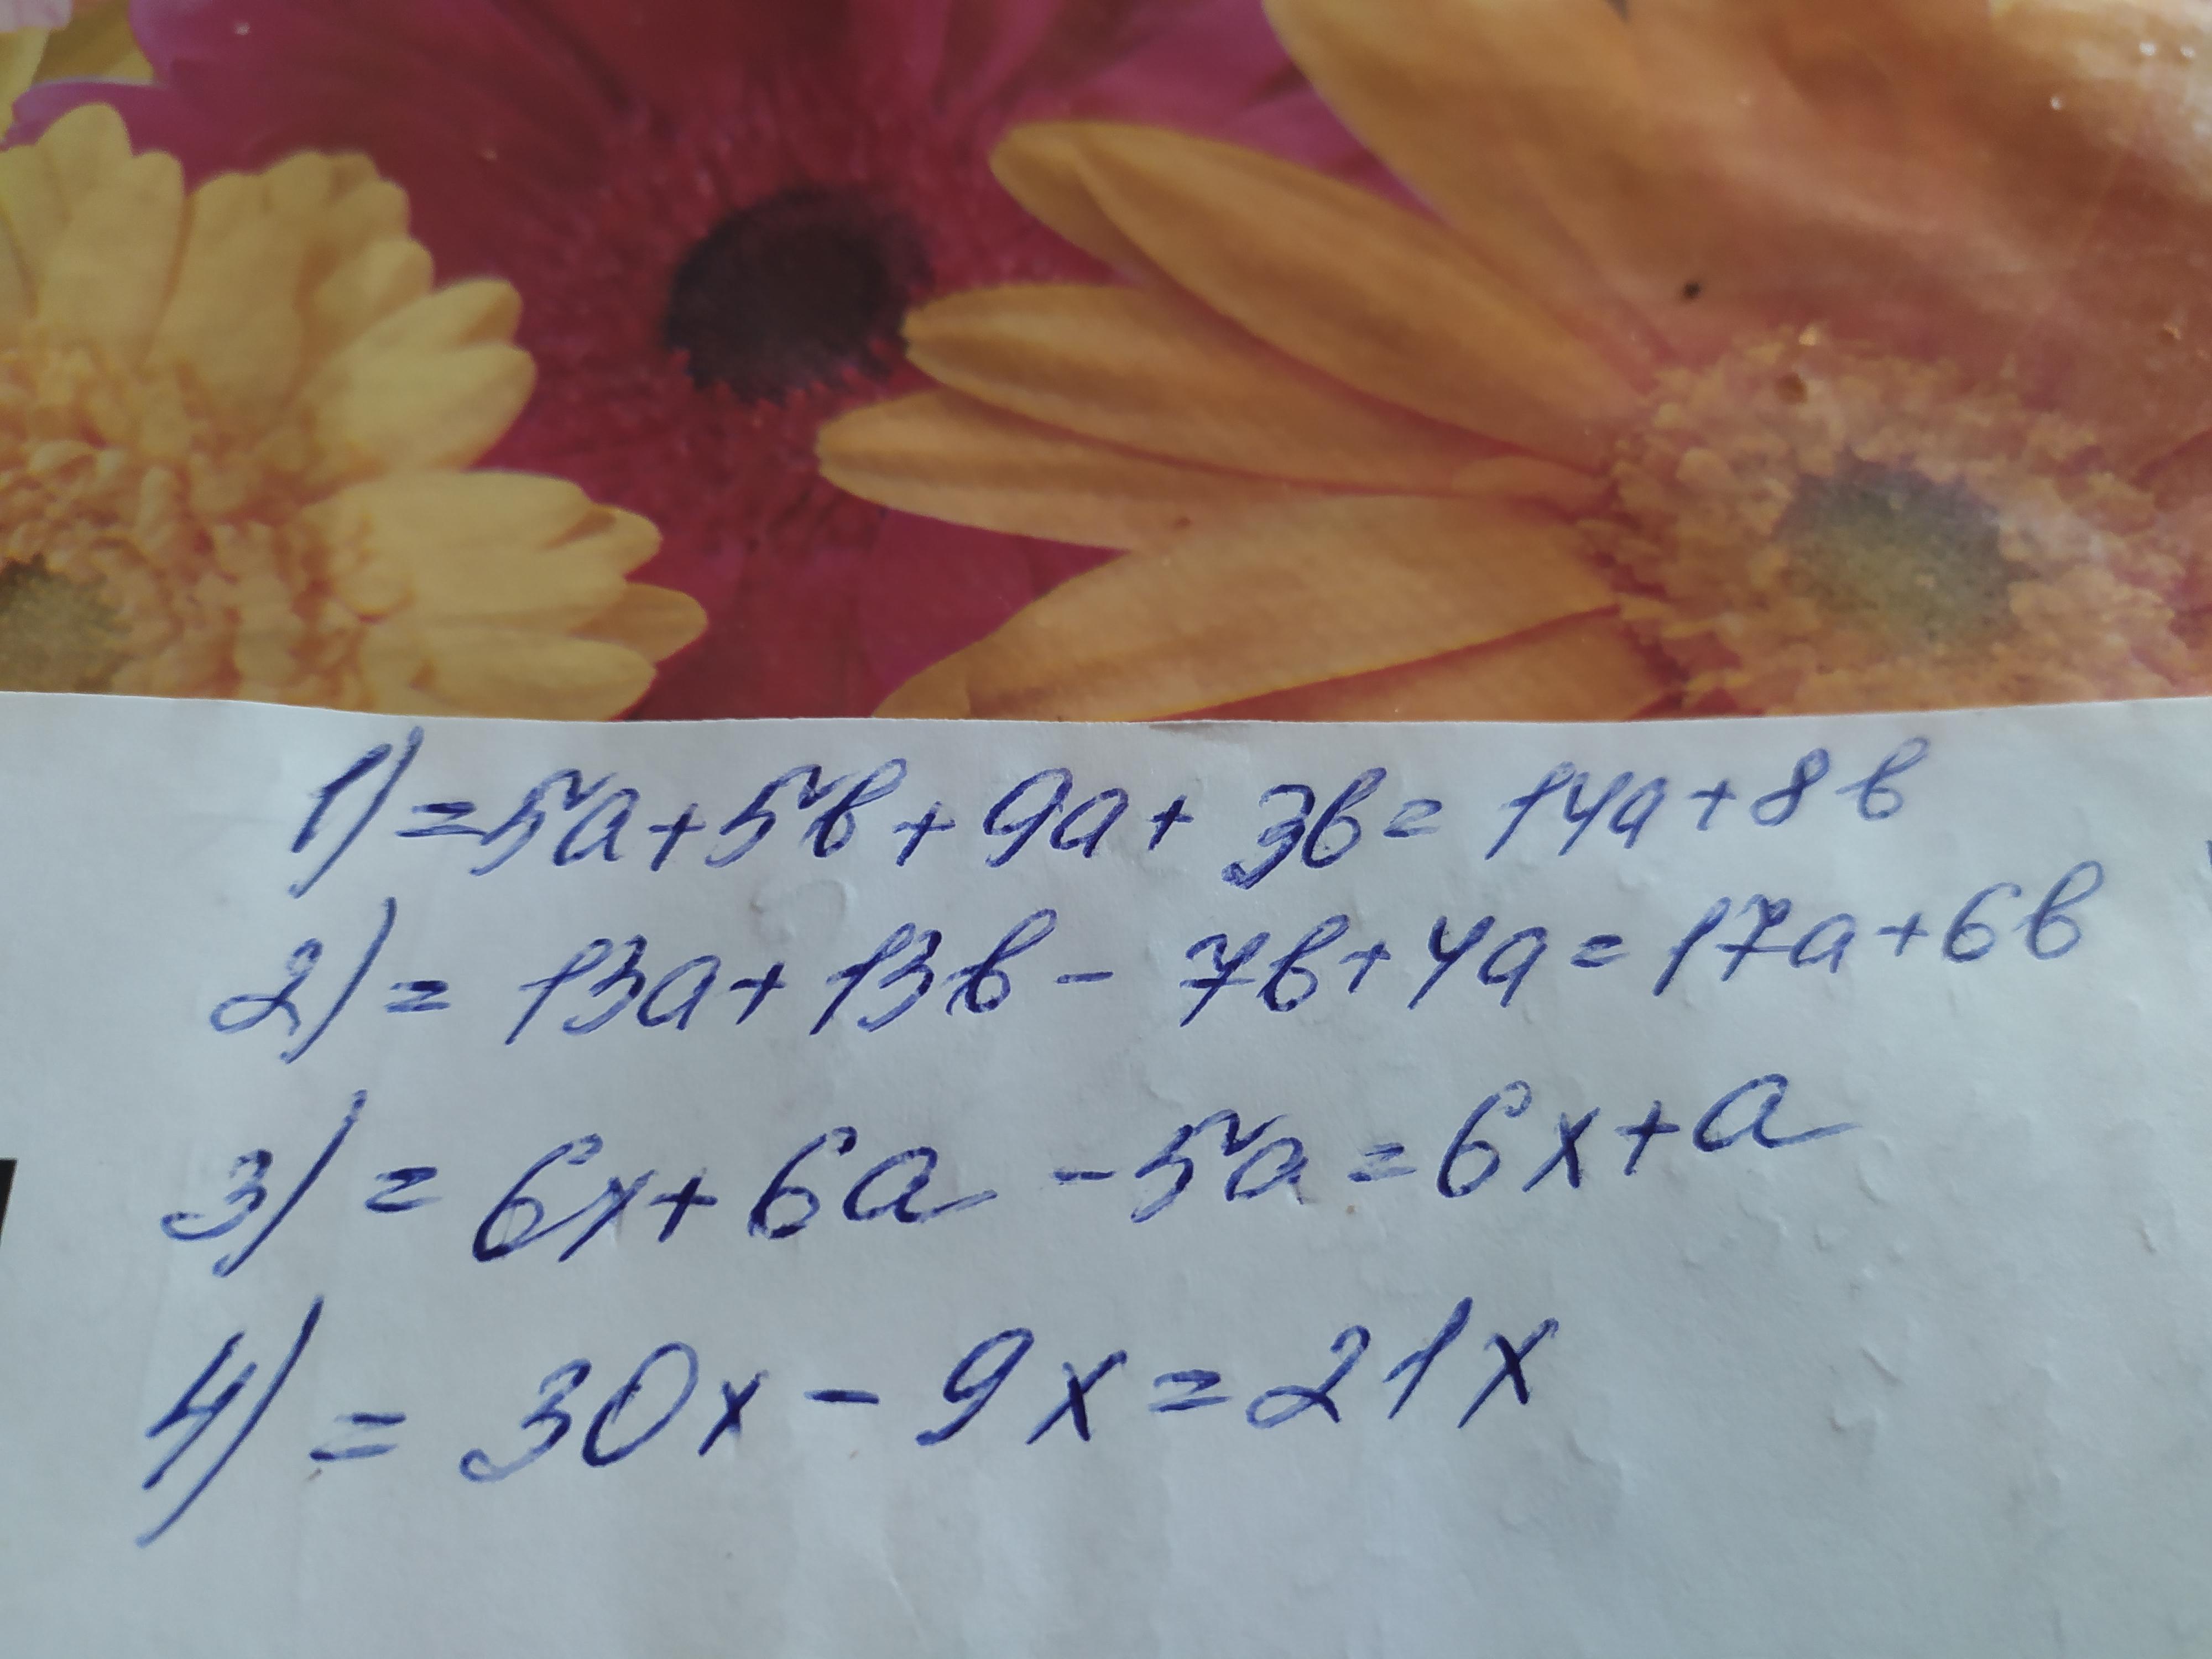 1) = 5a + 5b + 9a + 3b = 14a + 8b
2) = 13a + 13b - 7b + 4a = 17a + 6b
3) = 6x + 6a - 5a = 6x + a
4) = 30x - 9x = 21x